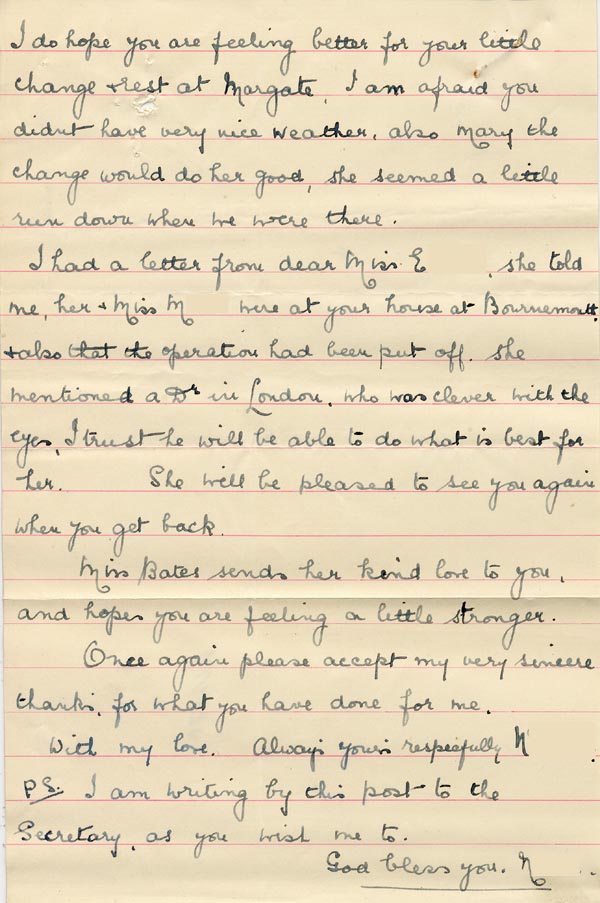 I do hope you are feeling better for your little
change & rest at Margate, I am afraid you
didnt have very nice weather, also Mary the
change would do her good, she seemed a little
run down when we were there.
I had a letter from dear Miss E , she told
me, her & Miss M were at your house at Bournemouth
& also that the operation had been put off. she
mentioned a Dr in London, who was clever with the
eyes, I trust he will be able to do what is best for
her. She will be pleased to see you again
when you get back.
Miss Bates sends her kind love to you,
and hopes you are feeling a little stronger.
Once again please accept my very sincere
thanks, for what you have done for me.
With my love. Always yours respecfully N .
P.S. I am writing by this post to the
Secretary, as you wish me to.
God bless you. N .